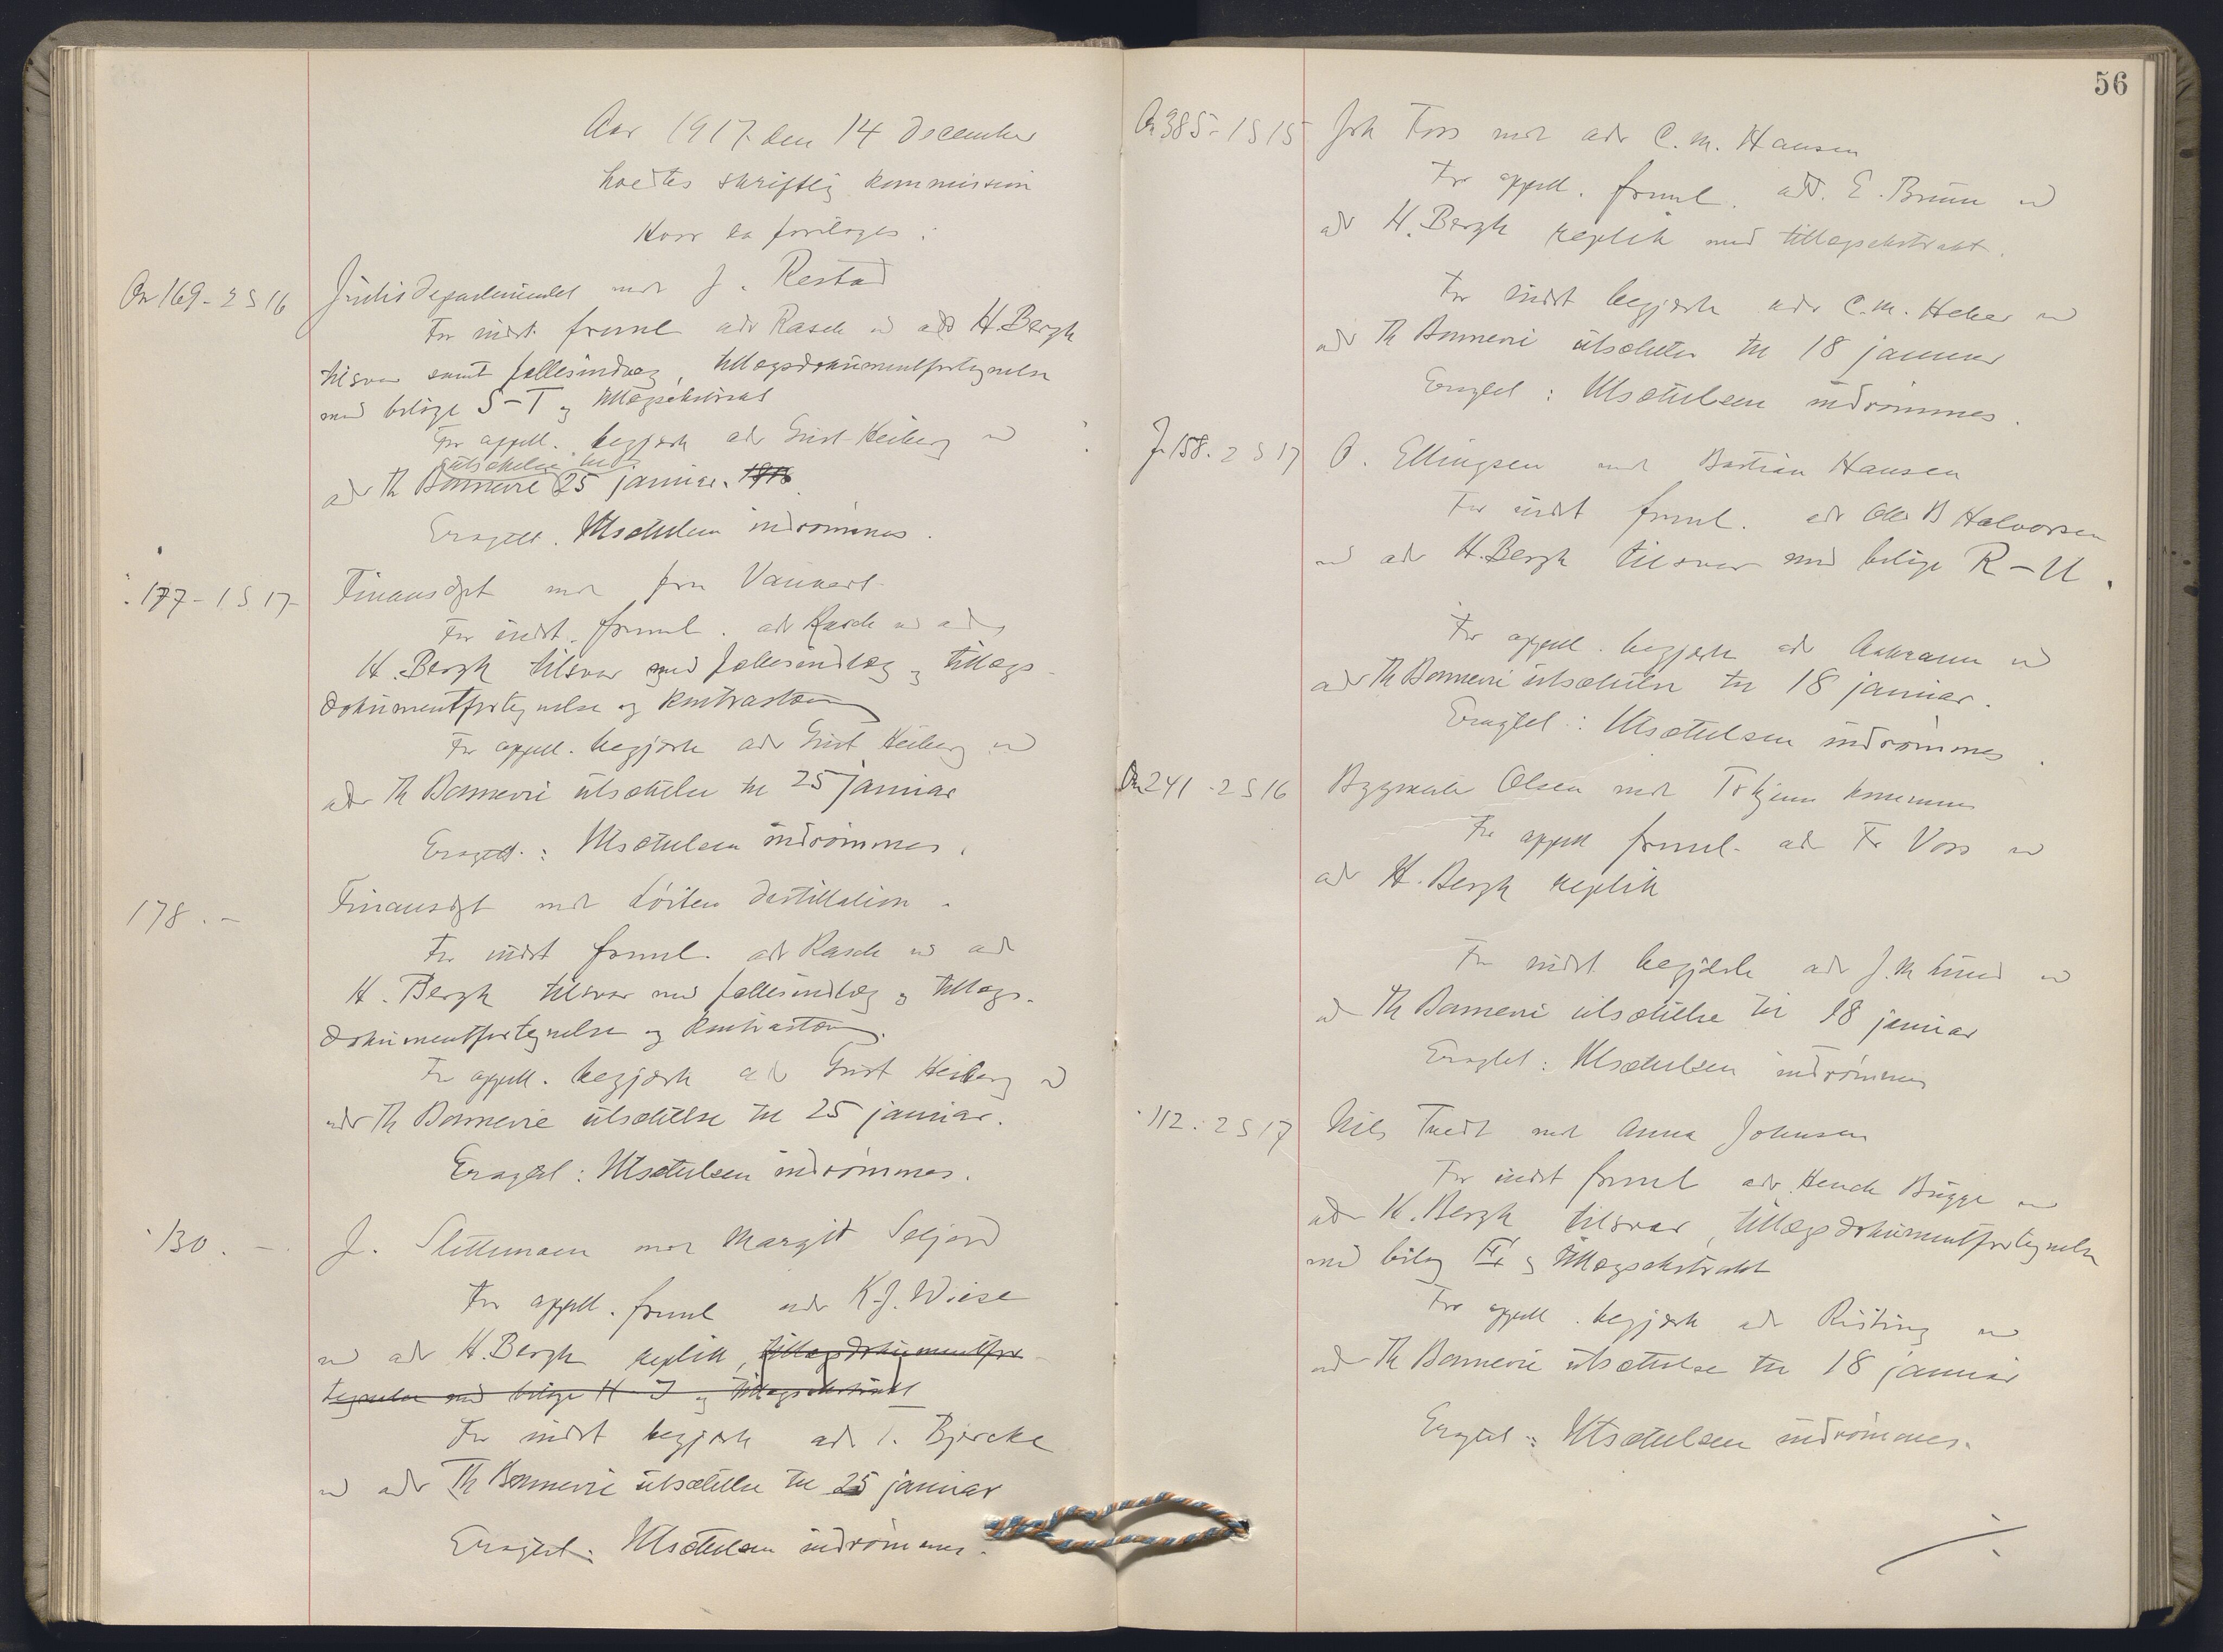 Aar 1917 den 14 december
holdtes skriftlig kommission
Hvor da foretoges:
An 169 - 2 S 16 Justisdepartementet mot J. Restad
For indst. freml adv Rasch ved adv H. Bergh
tilsvar samt fællesindlæg, tillægsdokumentfortegnelse
med bilage S-T og tillægsekstrakt
For appell. begjærte adv Gust Heiberg ved
utsættelse til
adv Th Bonnevie 25 januar. 1918
Eragtet. Utsættelsen indrømmes.
177 - 1 S 17 Finansdpt mot fru Vauvert
For indst. freml. adv Rasch ved adv
H. Bergh tilsvar med fællesindlæg og tillægs-
dokumentfortegnelse og kontrastevn
For appell. begjærte adv Gust Heiberg ved
adv Th Bonnevie utsættelse til 25 januar
Eragtet: Utsættelsen indrømmes.
178. - Finansdpt mot Løiten destillation.
For indst freml. adv Rasch ved adv
H. Bergh tilsvar med fællesindlæg og tillægs-
dokumentfortegnelse og kontrastevn.
For appell. begjærte adv Gust Heiberg ved
adv Th Bonnevie utsættelse til 25 januar.
Eragtet: Utsættelsen indrømmes.
130. - J. Slettemoen mot Margit Seljord
For appell. freml adv K.J. Wiese
ved adv H. Bergh replik, tillægsdokumentfor-
tegnelse med bilage H-J og tillægsekstrakt
For indst begjærte adv I. Bjercke
ved adv Th Bonnevie utsættelse til 25 januar
Eragtet: Utsættelsen indrømmes.
56
An 385 - 1 S 15 Joh Foss mot adv C. M. Hansen
For appell. freml. adv. E. Bruun ved
adv H. Bergh replik med tillægsekstrakt.
For indst begjærte adv C. M. Heker ved
adv Th Bonnevie utsættelse til 18 januar
Eragtet: Utsættelsen indrømmes.
J. 158. 2 S 17 O. Ellingsen mot Bastian Hansen
For indst freml. adv Ole B Halvorsen
ved adv H. Bergh tilsvar med bilage R-U.
For appell. begjærte adv Aakrann ved
adv Th Bonnevie utsættelse til 18 januar.
Eragtet: Utsættelsen indrømmes.
An 241 - 2 S 16 Bygmester Olsen mot Trhjem kommune
For appell freml. adv Fr Voss ved
adv H. Bergh replik
For indst begjærte adv J. M Lund ved
adv Th Bonnevie utsættelse til 18 januar
Eragtet: Utsættelsen indrømmes
112. 2 S 17 Nils Tvedt mot Anna Johnsen
For indst freml adv Hench Bugge ved
adv H. Bergh tilsvar, tillægsdokumentfortegnelse
med bilag og tillægsekstrakt
For appell. begjærte adv Risting ved
adv Th Bonnevie utsættelse til 18 januar
Eragtet: Utsættelsen indrømmes.